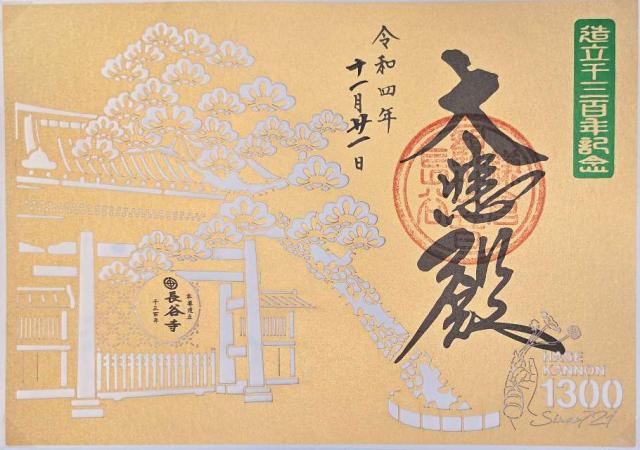 造立千三百年記念
大悲殿
令和四年
十一月廿一日
本尊造立
千三百年
長谷寺
HASE
KANNON
1300
Since 721